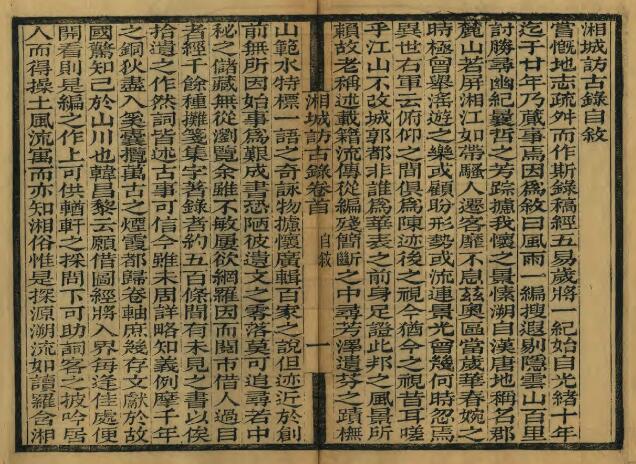 湘城訪古錄自敘
嘗慨地志疏舛而作斯錄稿經五易歲將一紀始自光緒十年
迄于廿年乃蕆事焉因爲敘曰風雨一編搜遐剔隱雲山百里
討勝尋幽紀曩哲之芳踪攄我懷之景愫溯自漢唐地稱名郡
麓山若屏湘江如帶騷人遷客靡不息茲奧區當歲華春婉之
時極曾舉滛遊之樂或顧盼形勢或流連景光曾幾何時忽焉
異世右軍云俯仰之間俱爲陳迹後之視今猶今之視昔耳嗟
乎江山不改城郭都非誰爲華表之前身足證此邦之風景所
賴故老稱述載籍流傳從編殘簡斷之中尋芳澤遺芬之蹟橅
湘城訪古錄卷首 自敘 一
山範水特標一語之奇詠物攄懷廣輯百家之說但迹近於創
前無所因始事爲艱成書恐陋彼遺文之零落莫可追尋若中
秘之儲藏無從瀏覽余雖不敏屢欲網羅因而閱市借人過目
者經千餘種攤箋集字著錄者約五百條間有未見之書以俟
拾遺之作然詞皆述古事可信今雖未周詳略知義例摩千年
之銅狄盡入奚囊攬萬古之煙霞都歸卷軸庶幾存文獻於故
國驚知己於山川也韓昌黎云願借圖經將入界每逢佳處便
開看則是編之作上可供輶軒之採問下可助詞客之披吟居
人而得操土風流寓而亦知湘俗惟是探源溯流如讀羅含湘